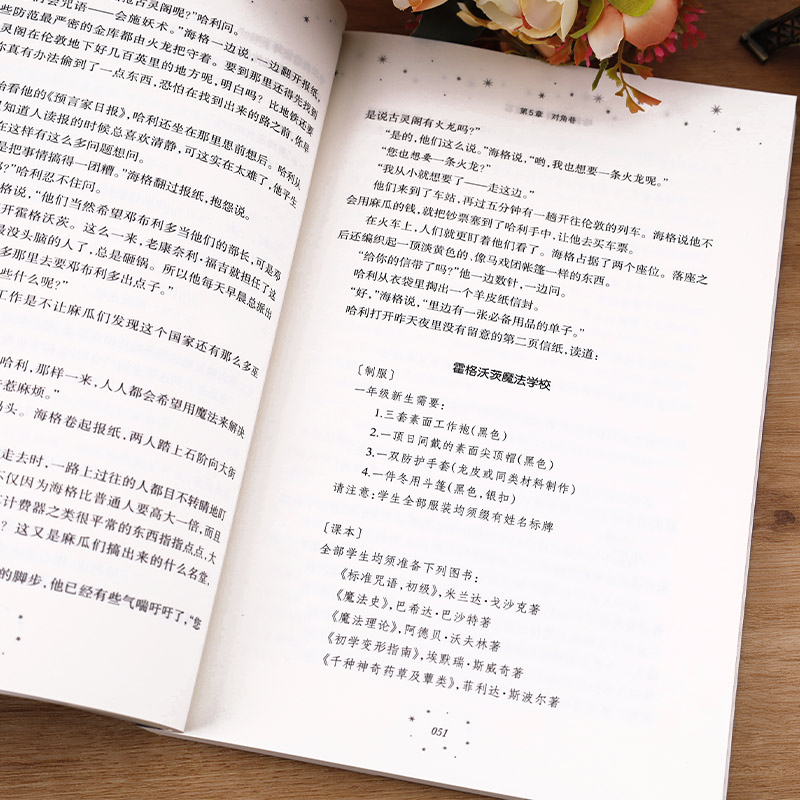 古灵阁呢?”哈利问。
些会咒语——会施妖术。”海格一边说,一边翻开报纸,
些防范最严密的金库都由火龙把守着。要到那里还得先找到
灵阁在伦敦地下好几百英里的地方呢,明白吗?比地铁还要
你真有办法偷到了一点东西,恐怕在找到出来的路之前,你早
看他的《预言家日报》,哈利还坐在那里思前想后。哈利从
知道人读报的时候总喜欢清静,可这实在太难了,他平生
在这样有这么多问题想问。
是把事情搞得一团糟。”海格翻过报纸,抱怨说。
?”哈利忍不住问。
格说,“他们当然希望邓布利多当他们的部长,可是邓
开霍格沃茨。这么一来,老康奈利·福吉就担任了这
最没头脑的人了,总是砸锅。所以他每天早晨总派出
多那里去要邓布利多出点子。”
些什么呢?”
工作是不让麻瓜们发现这个国家还有那么多巫
哈利,那样一来,人人都会希望用魔法来解决
去惹麻烦。”
码头。海格卷起报纸,两人踏上石阶向大街
走去时,一路上过往的人都目不转睛地盯
不仅因为海格比普通人要高大一倍,而且
计费器之类很平常的东西指指点点,大
?这又是麻瓜们搞出来的什么名堂,
的脚步,他已经有些气喘吁吁了,“您
第5章 对角巷
是说古灵阁有火龙吗?”
“是的,他们这么说。”海格说,“哟,我也想要一条火龙呢。”
“您也想要一条火龙?”
“我从小就想要了——走这边。”
他们来到了车站,再过五分钟有一趟开往伦敦的列车。海格说他不
会用麻瓜的钱,就把钞票塞到了哈利手中,让他去买车票。
在火车上,人们就更盯着他们看了。海格占据了两个座位。落座之
后还编织起一顶淡黄色的、像马戏团帐篷一样的东西。
“给你的信带了吗?”他一边数针,一边问。
哈利从衣袋里掏出一个羊皮纸信封。
“好,”海格说,“里边有一张必备用品的单子。”
哈利打开昨天夜里没有留意的第二页信纸,读道:
霍格沃茨魔法学校
[制服]
一年级新生需要:
1.三套素面工作袍(黑色)
2.一顶日间戴的素面尖顶帽(黑色)
3.一双防护手套(龙皮或同类材料制作)
4.一件冬用斗篷(黑色,银扣)
请注意:学生全部服装均须缀有姓名标牌
[课本]
全部学生均须准备下列图书:
《标准咒语,初级》,米兰达·戈沙克著
《魔法史》,巴希达·巴沙特著
《魔法理论》,阿德贝·沃夫林著
《初学变形指南》,埃默瑞·斯威奇著
《千种神奇药草及蕈类》,菲利达·斯波尔著
051